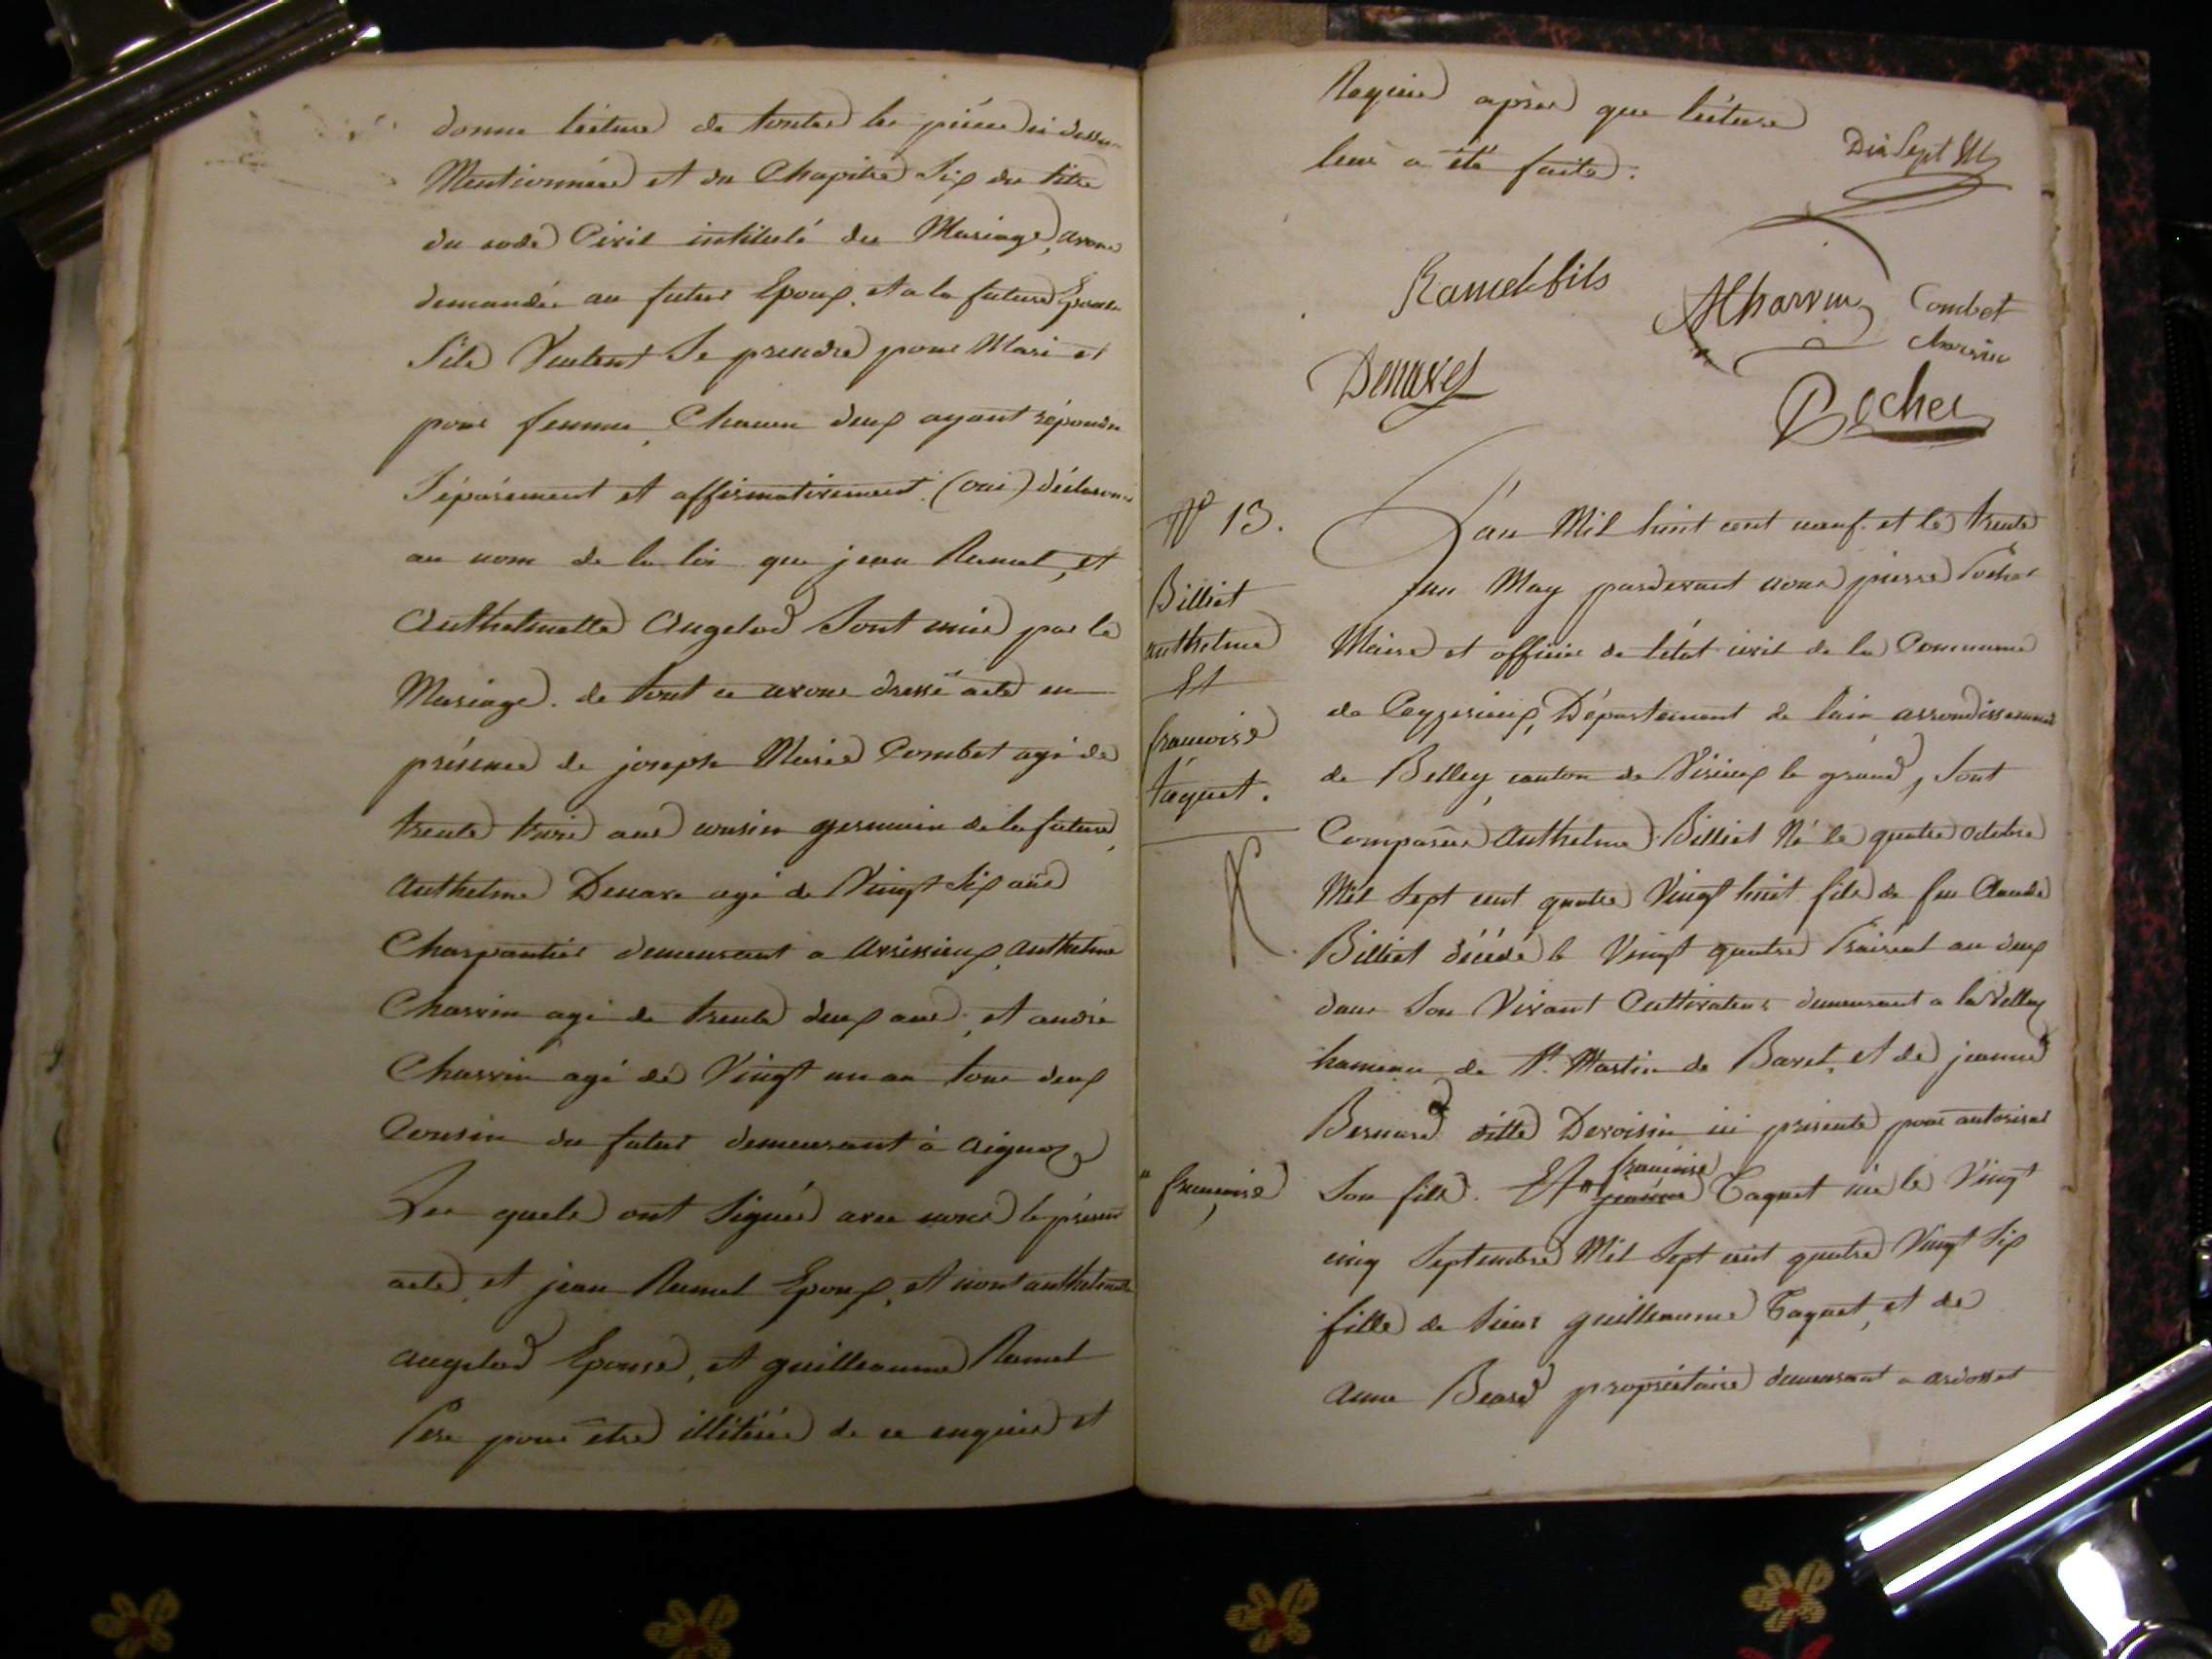 donné lécture de toutes les pièces ci dessus
Mentionnées et du Chapitre Six du titre
du code Civil intitulé du Mariage, avons
demandés au futur Epoux, et a la future Epouse
Sils Veulent Se prendre pour Mari et
pour femme, Chacun deux ayant répondu
Séparément et affirmativement (oui) déclarons
au nom de la loi que jean Ramel, et
Anthelmette Angelod Sont unis par le
Mariage. de tout ce avons dressé acte en
présence de joseph Marie Combet agé de
trente trois ans cousin germain de la future,
Anthelme Denare agé de Vingt Six ans
Charpantier demeurant a arvissieux, anthelme
Charvin agé de trente deux ans, et andré
Charvin agé de Vingt un an tous deux
Cousin du futur demeurant à aignoz
Les quels ont Signés avec nous le présent
acte, et jean Ramel Epoux, et non anthelmette
angelod Epouse, et guilleaume Ramel
Pere pour être illétérés de ce enquis et
Requis après que lécture
leur a été faite.
Dix Sept M
Ramel fils
ACharvin
Combet
charvin
Denarez
Pochet
N° 13.
Billiet
anthelme
Et
francoise
taquet.
L'an Mil huit cent neuf et le trente
un May pardevant nous pierre Pochet
Maire et officier de l'état civil de la Commune
de Ceyzerieux, Département de lain arrondissement
de Belley, canton de Virieux le grand, Sont
Comparus Anthelme Billiet Né le quatre octobre
Mil Sept cent quatre Vingt huit fils de feu Claude
Billiet décédé le Vingt quatre Prairial an deux
dans Son Vivant Cultivateur demeurant a la Vellaz
hameau de St. Martin de Bavel, et de jeanne
Bernard ditte Devoisin ici présente pour autoriser
" francoise
Son fils. Et " jeanne francoise Taquet née le Vingt
cinq Septembre Mil Sept cent quatre Vingt Six
fille de Sieur guilleaume Taquet, et de
anne Beard propriétaire demeurant a ardosset